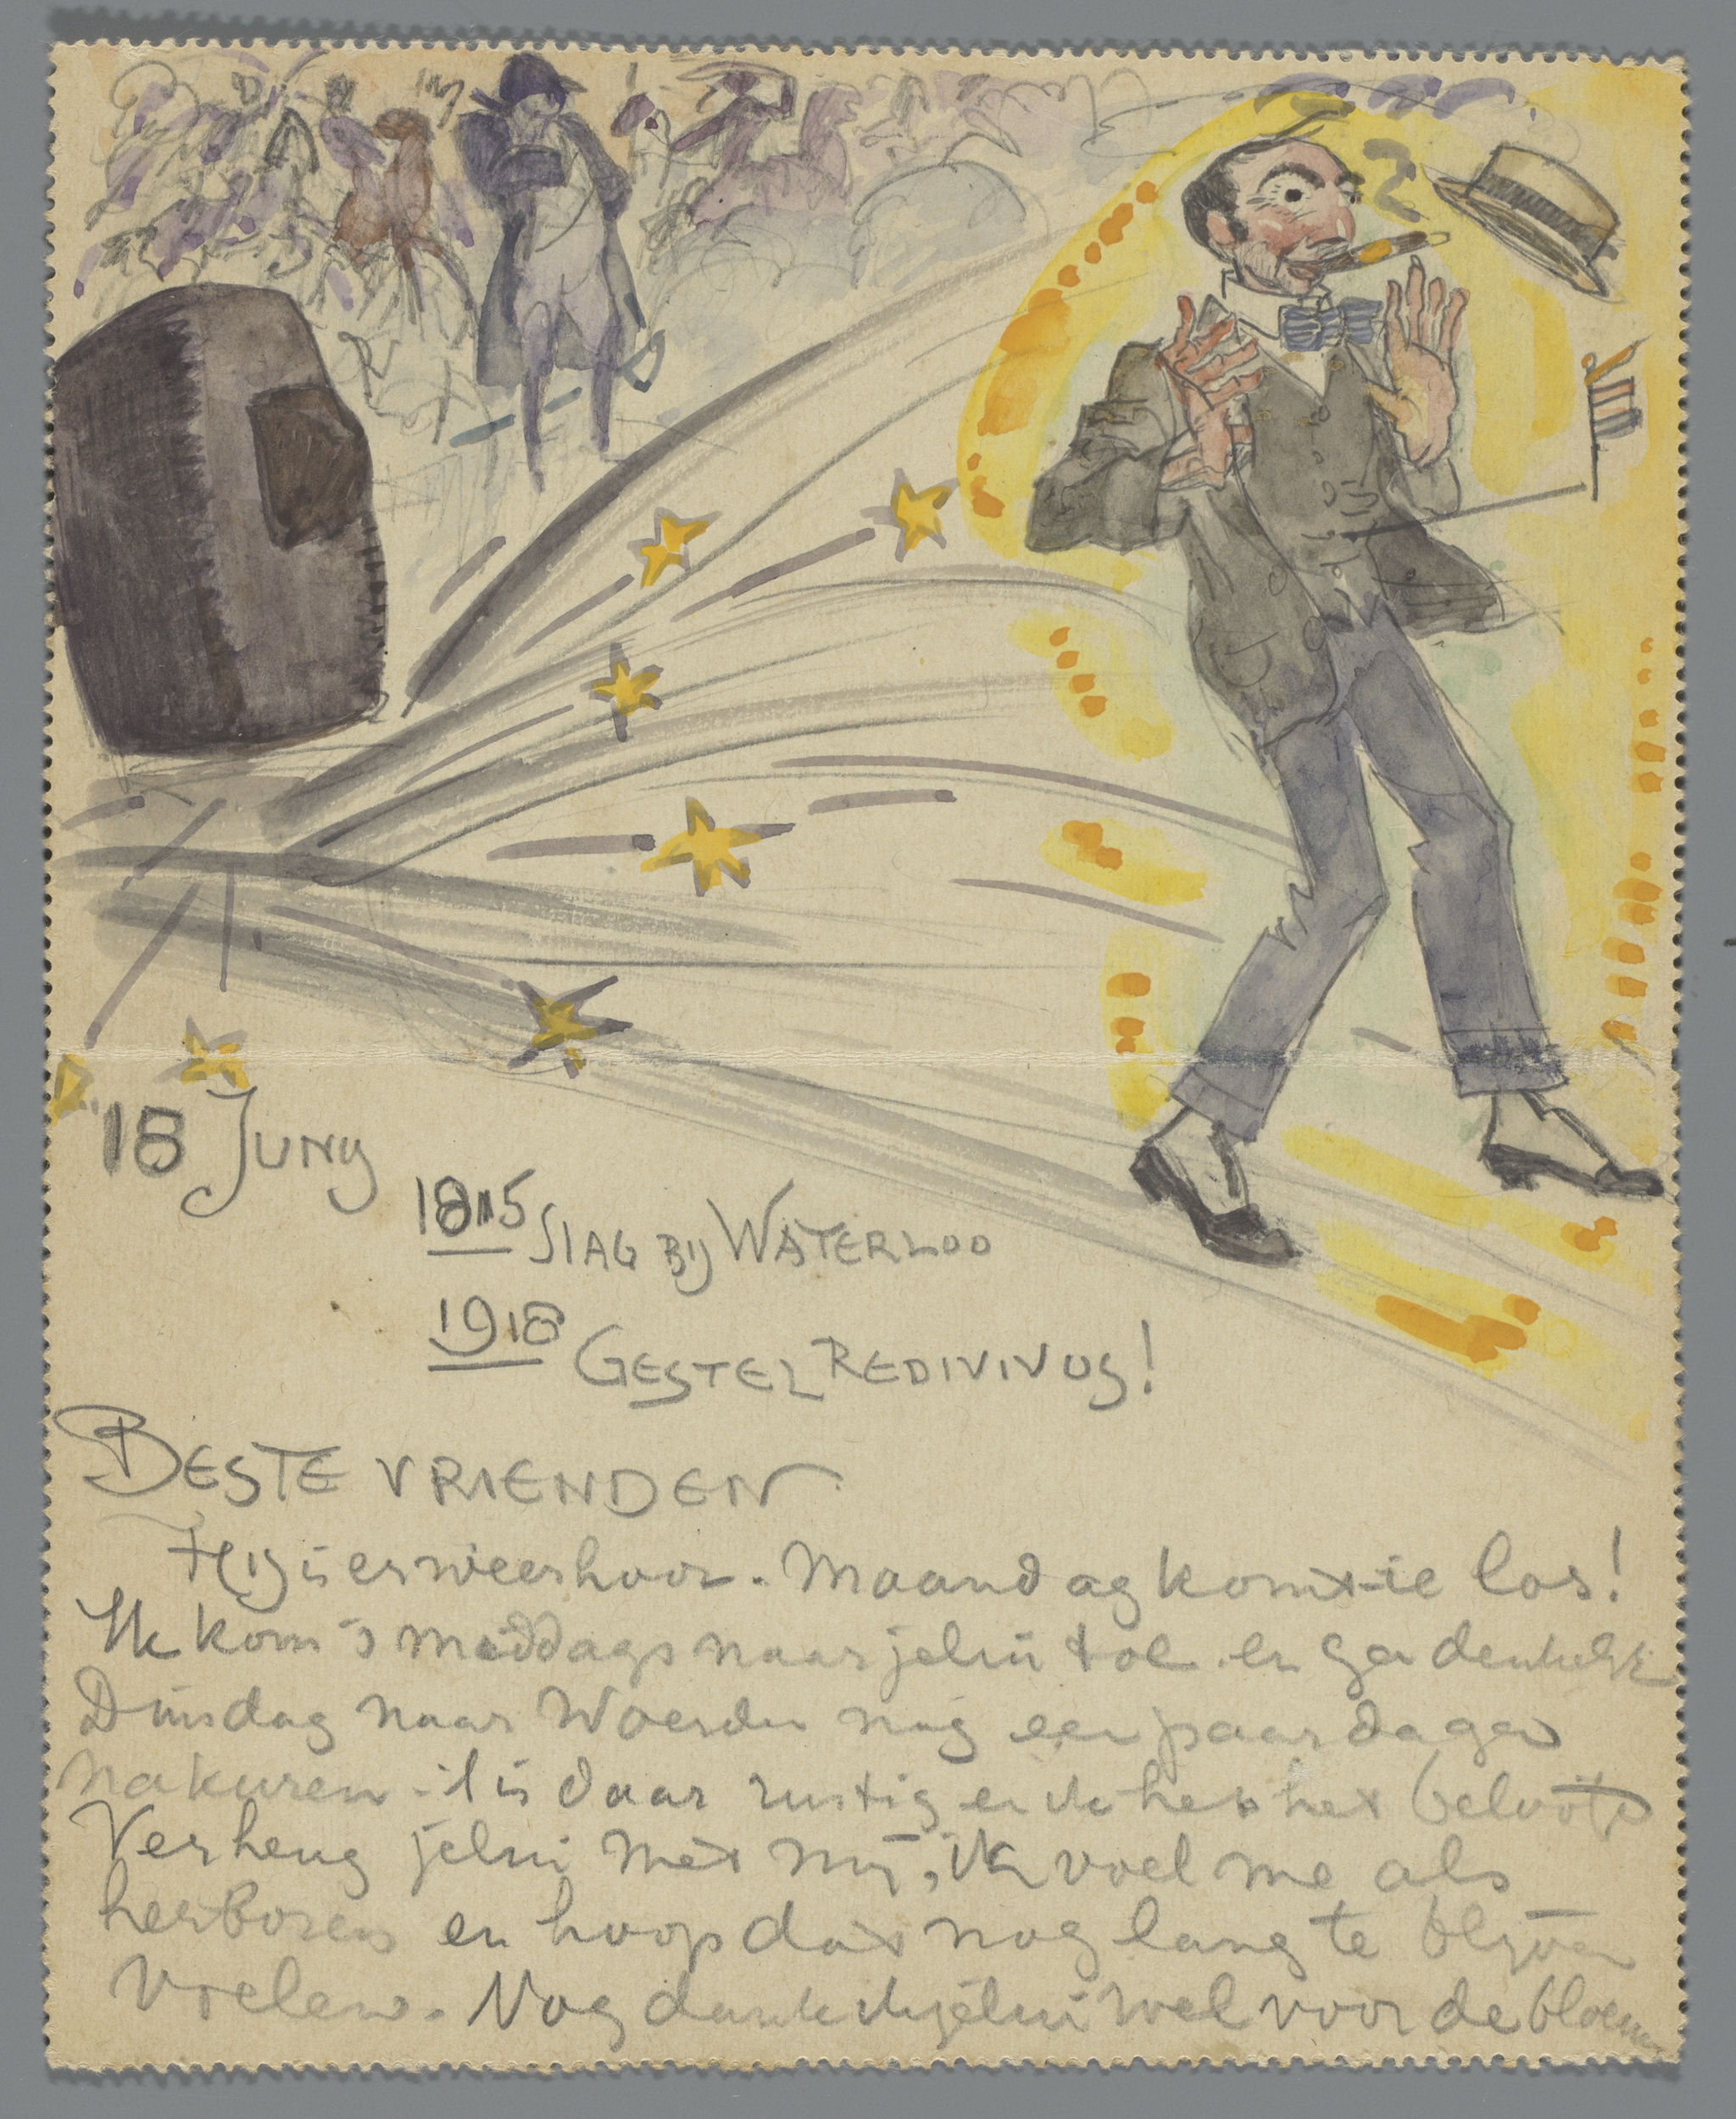 18 Juny
1815 Slag bij Waterloo
1918 Gestel Redivivus!
Beste vrienden
Hij is er weer hoor. Maandag komt-ie los!
Ik kom 's middags naar jelui toe en ga denkelijk
Dinsdag naar Woerden nog een paar dagen
nakuren - 't is daar rustig en ik heb het beloofd
Verheug jelui met mij, ik voel me als
herboren en hoop dat nog lang te blijven
voelen. Nog dank ik jelui wel voor de bloemen